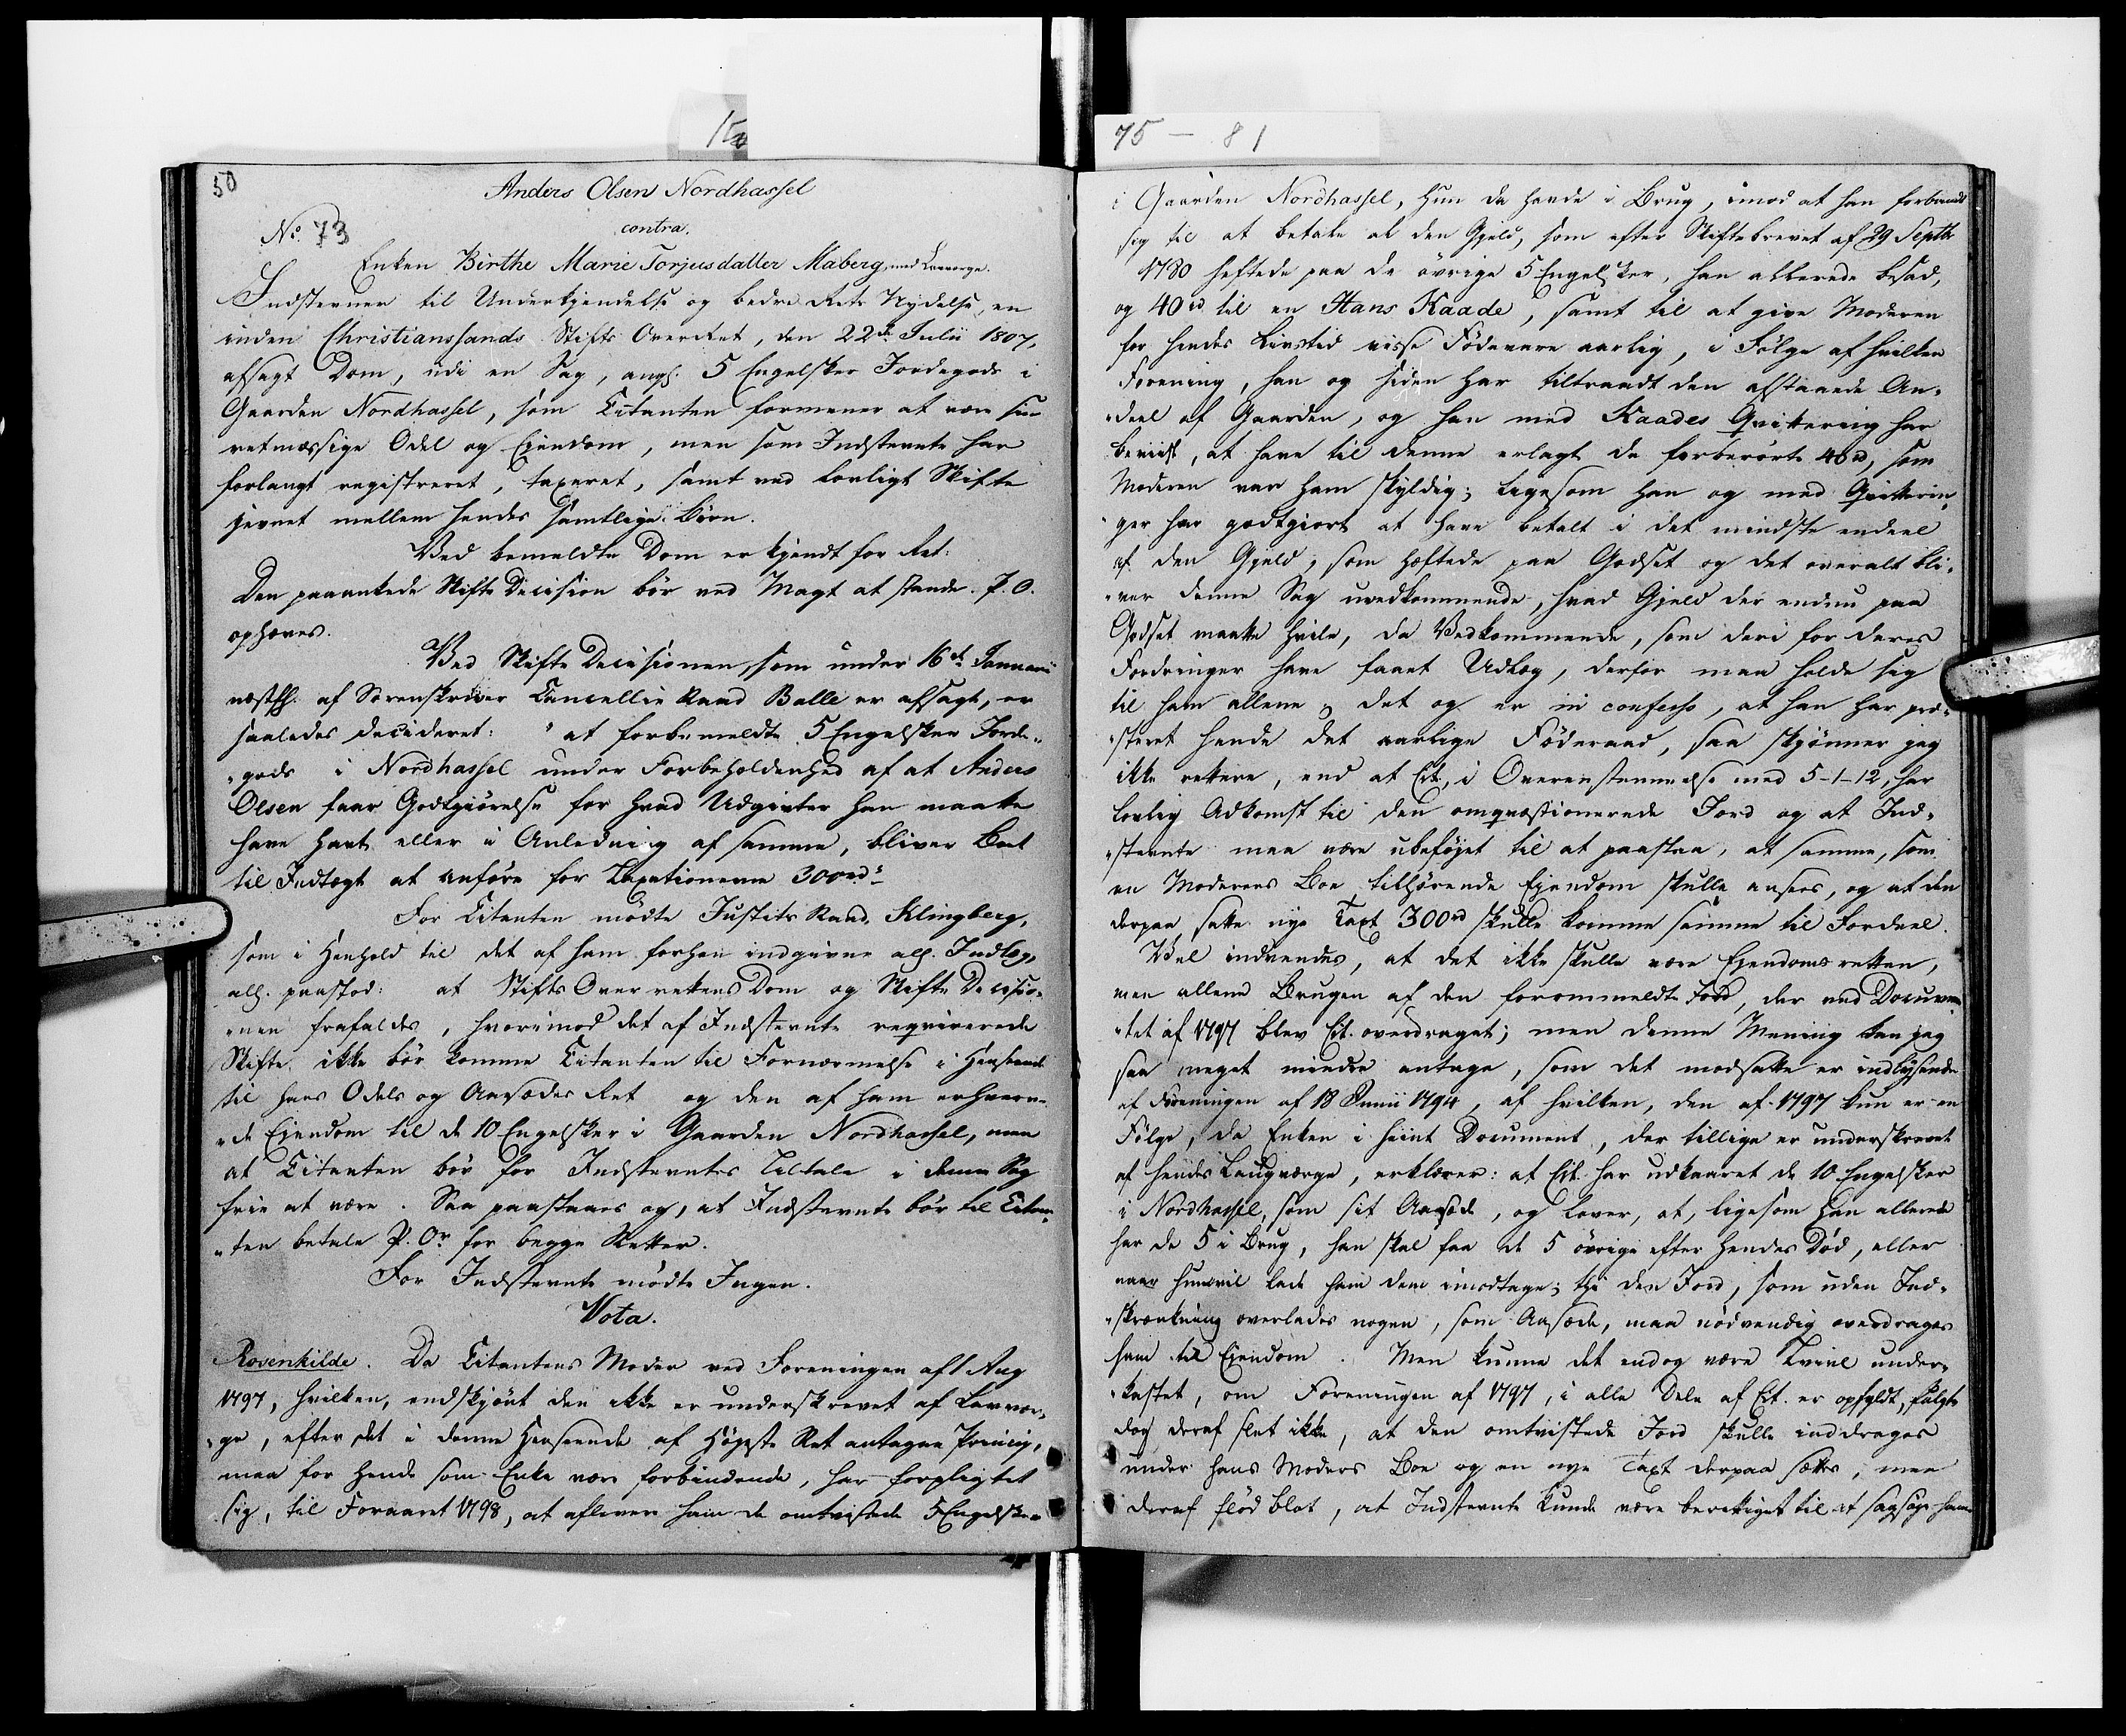 15
75 - 81
50
Anders Olsen Nordhassel
No. 73
contra.
Enken Birthe Marie Torjusdatter Maberg, med Lauværge.
Indstevner til Underkjendelse og bedre Rets Nydelse, en
inden Christianssands Stifts OverRet, den 22de Julii 1807,
afsagt Dom, udi en Sag, angl. 5 Engelsker Jordegods i
Gaarden Nordhassel, som Citanten formener at være sin
retmæssige Odel og Ejendom, men som Indstevnte har
forlangt registreret, taxeret, samt ved lovligt Skifte
jevnet mellem hendes samtlige Børn.
Ved bemeldte Dom er kjendt for Ret:
Den paaankede Skifte Decision bør ved Magt at stande. P. O.
ophæves.
Ved Skifte Decisionen, som under 16de Januarii
næstf. af Sorenskriver Cancellie Raad Balle er afsagt, er
saaledes decideret: "at forbemeldte 5 Engelsker Jorde-
"gods i Nordhassel under Forbeholdenhed af at Anders
Olsen faar Godtgiørelse for hvad Udgivter han maatte
have havt eller i Anledning af samme, bliver Boet
til Indtægt at anføre for Taxationerne 300rds
For Citanten mødte Justits Raad Klingberg,
som i Henhold til det af ham forhen indgivne all. Indlæg,
all. paastod: at Stifts Over rettens Dom og Skifte Decisio-
"nen frafaldes, hvorimod det af Indstevnte requirerede
Skifte ikke bør komme Citanten til Fornærmelse i Henseende
til hans Odels og Aasædes Ret og den af ham erhverve-
"de Ejendom til de 10 Engelsker i Gaarden Nordhassel, men
at Citanten bør for Indstevntes Tiltale i denne Sag
frie at være. Saa paastaaes og, at Indstevnte bør til Citan-
"ten betale P. Or for begge Retter.
For Indstevnte mødte Ingen.
Vota.
Rosenkilde. Da Citantens Moder ved Foreningen af 1 Aug
1797, hvilken, endskjønt den ikke er underskrevet af Lauvær-
"ge, efter det i denne Henseende af Højeste Ret antagne Princip,
maa for hende som Enke være forbindende, har forpligtet
sig, til Foraaret 1798, at aflevere ham de omtvistede 5 Engelsker
i Gaarden Nordhassel, hun da havde i Brug, imod at han forbandt
sig til at betale al den Gjeld, som efter Skiftebrevet af 29 Septbr
1780 heftede paa de øvrige 5 Engelsker, han allerede besad,
og 40rd til en Hans Kaade, samt til at give Moderen
for hendes Livstid visse Fødevare aarlig, i Følge af hvilken
Forening, han og siden har tiltraadt den afstaaede An-
"deel af Gaarden, og han med Kaades Qvittering har
beviist, at have til denne erlagt de forberørte 40rd, som
Moderen var ham skyldig; ligesom han og med Qvitterin-
"ger har godtgiort at have betalt i det mindste endeel
af den Gjeld, som heftede paa Godset og det overalt bli-
"ver denne Sag uvedkommende, hvad Gjeld der endnu paa
Godset maatte hvile, da Vedkommende, som deri for deres
Fordringer have faaet Udlæg, derfor maa holde sig
til ham allene, det og er in confesso, at han har præ-
"steret hende det aarlige Føderaad, saa skjønner jeg
ikke rettere, end at Cit., i Overeensstemmelse med 5-1-12, har
lovlig Adkomst til den omqvæstionerede Jord og at Ind-
"stevnte maa være ubeføjet til at paastaa, at samme, som
en Moderens Boe tilhørende Ejendom skulle ansees, og at den
derpaa satte nye Taxt 300rd skulle komme samme til Fordeel.
Vel indvendes, at det ikke skulle være Ejendoms retten,
men allene Brugen af den forommeldte Jord, der ved Documen-
"tet af 1797 blev Cit. overdraget; men denne Mening kan jeg
saa meget mindre antage, som det modsatte er indlysende
af Foreningen af 18 Junii 1794, af hvilken, den af 1797 kun er en
Følge, da Enken i hiint Document, der tillige er underskrevet
af hendes Laugværge, erklærer: at Cit. har udkaaret de 10 Engelsker
i Nordhassel, som sit Aasæde, og lover, at, ligesom han allerede
har de 5 i Brug, han skal faa de 5 øvrige efter hendes Død, eller
naar hun vil lade ham dem imodtage; thi den Jord, som uden Ind-
"skrænkning overlades nogen, som Aasæde, maa nødvendig overdrages
ham til Ejendom. Men kunne det endog være Tvivl under-
"kastet, om Foreningen af 1797, i alle Dele af Cit. er opfyldt, fulgte
dog deraf slet ikke, at den omtvistede Jord skulle inddrages
under hans Moders Boe og en nye Taxt derpaa sættes, men
deraf flød blot, at Indstevnte kunde være berettiget til at sagsøge ham